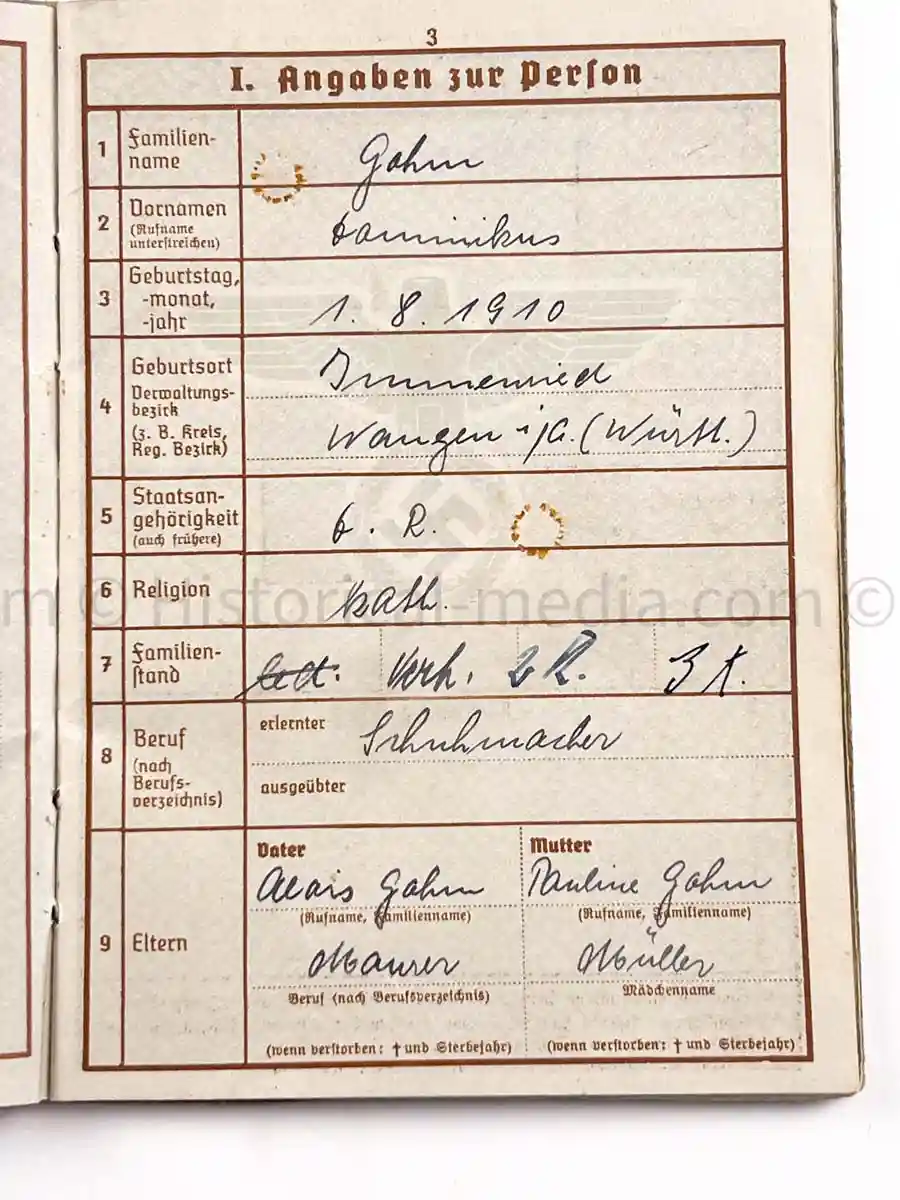 3
I. Angaben zur Person
1 Familien-
name
Gohm
2 Vornamen
(Rufname
unterstreichen)
Dominikus
3 Geburtstag,
-monat,
-jahr
1. 8. 1910
4 Geburtsort
Verwaltungs-
bezirk
(z. B. Kreis,
Reg. Bezirk)
Immenried
Wangen i/A. (Württ.)
5 Staatsan-
gehörigkeit
(auch frühere)
D. R.
6 Religion
Kath.
m © historical-media.com ©
7 Familien-
stand
led. Verh. 2 K. 3 K.
8 Beruf
(nach
Berufs-
verzeichnis)
erlernter
Schuhmacher
ausgeübter
9 Eltern
Vater
Alois Gohm
(Rufname, Familienname)
Maurer
Beruf (nach Berufsverzeichnis)
(wenn verstorben: † und Sterbejahr)
Mutter
Pauline Gohm
(Rufname, Familienname)
Müller
Mädchenname
(wenn verstorben: † und Sterbejahr)